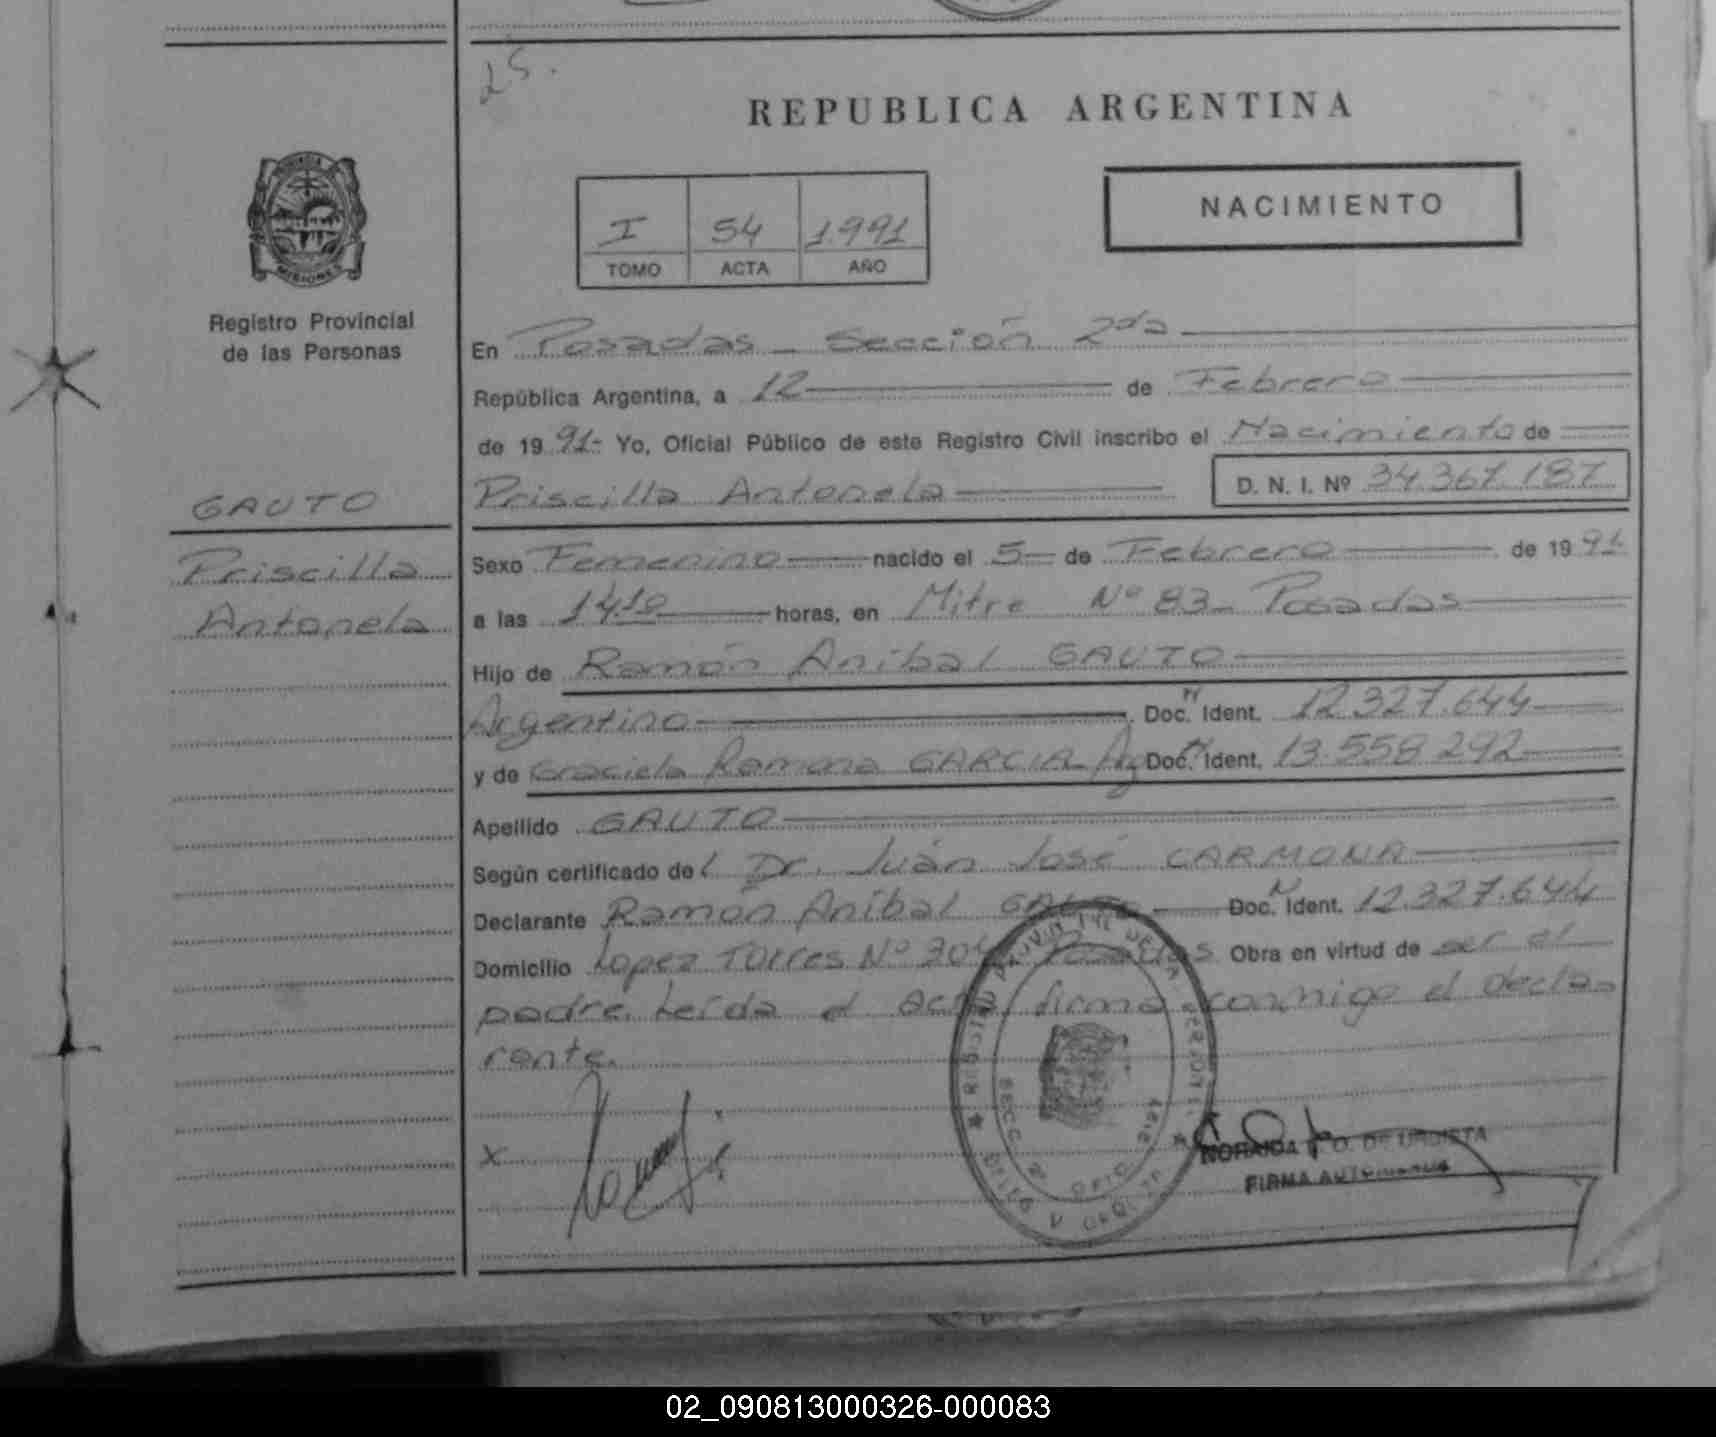 25.
REPUBLICA ARGENTINA
PROVINCIA
MISIONES
I 54 1.991
TOMO ACTA AÑO
NACIMIENTO
Registro Provincial
de las Personas
En Posadas - Sección 2da
República Argentina, a 12 de Febrero
de 19 91- Yo, Oficial Público de este Registro Civil inscribo el Nacimiento de
Priscilla Antonela D. N. I. Nº 34.367.187
GAUTO
Priscilla
Antonela
Sexo Femenino nacido el 5 de Febrero de 19 91
a las 14.10 horas, en Mitre Nº 83- Posadas
Hijo de Ramón Anibal GAUTO
Argentino Doc. N Ident. 12.327.644
y de Graciela Ramona GARCIA- Arg Doc. N Ident. 13.558.292
Apellido GAUTO
Según certificado del Dr. Juán José CARMONA
Declarante Ramón Aníbal GAUTO Doc. N Ident. 12.327.644
Domicilio Lopez Torres Nº 304 Posadas Obra en virtud de ser el
padre. Leída el acta, firma conmigo el decla-
rante.
X
REGISTRO PROVINCIAL DE LAS PERSONAS
SECC. 2ª
NORAIDA O. DE URDIETA
FIRMA AUTORIZADA
02_090813000326-000083